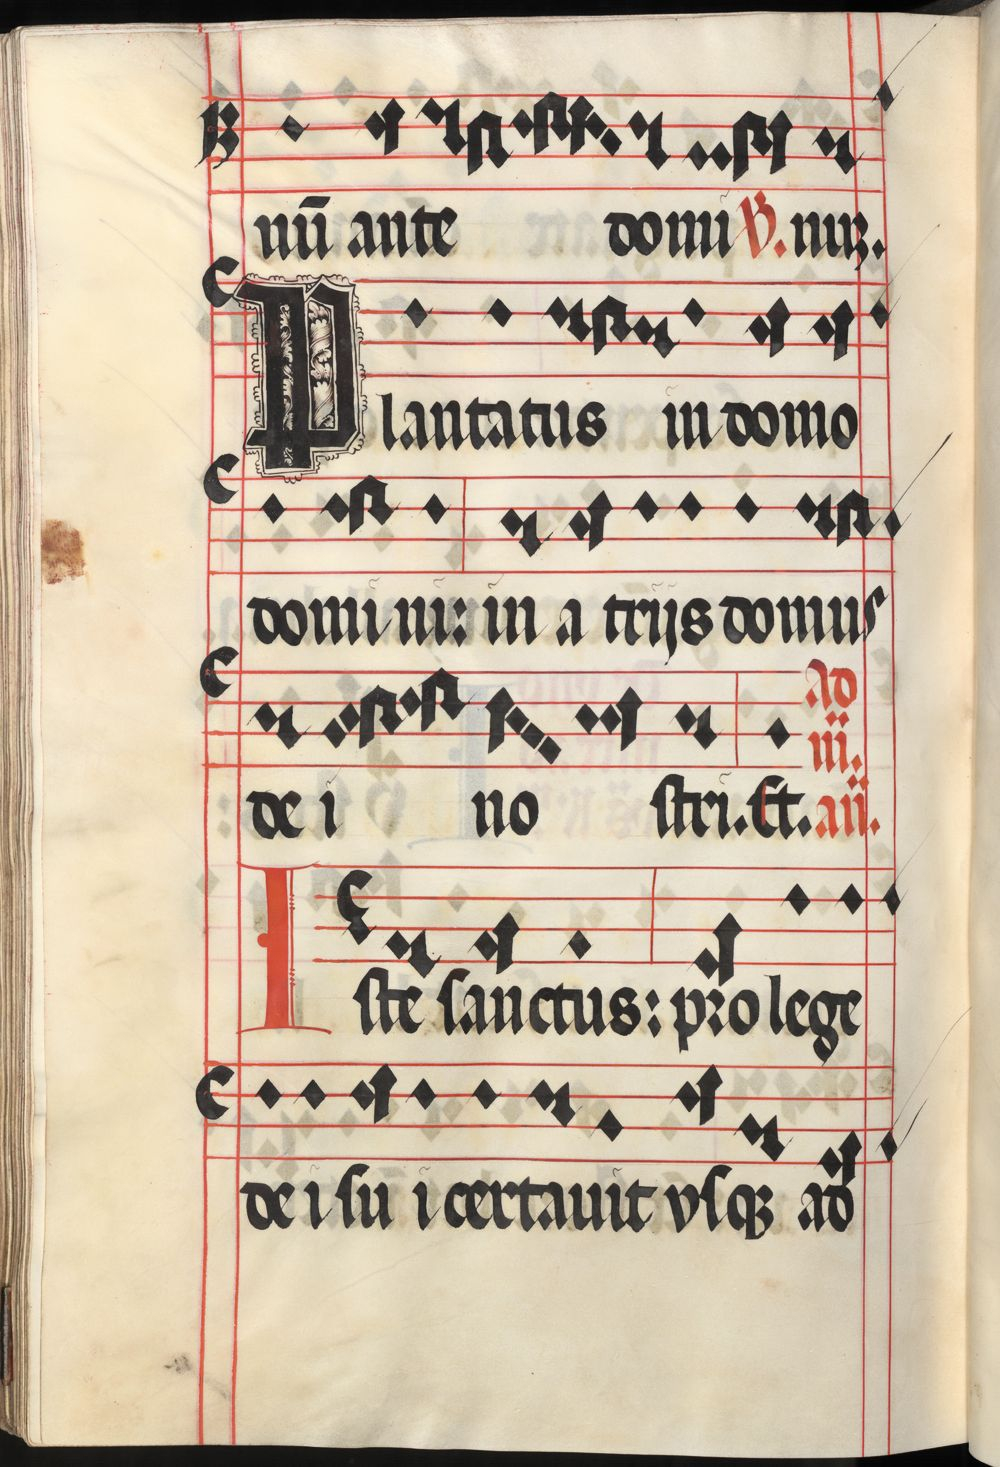 nū ante domi V. nuʒ.
Plantatus in domo
domi ni: in a trijs domus
de i no stri. Et. Ad iii. añ.
Iste sanctus: pro lege
de i su i certauit vsqʒ ad